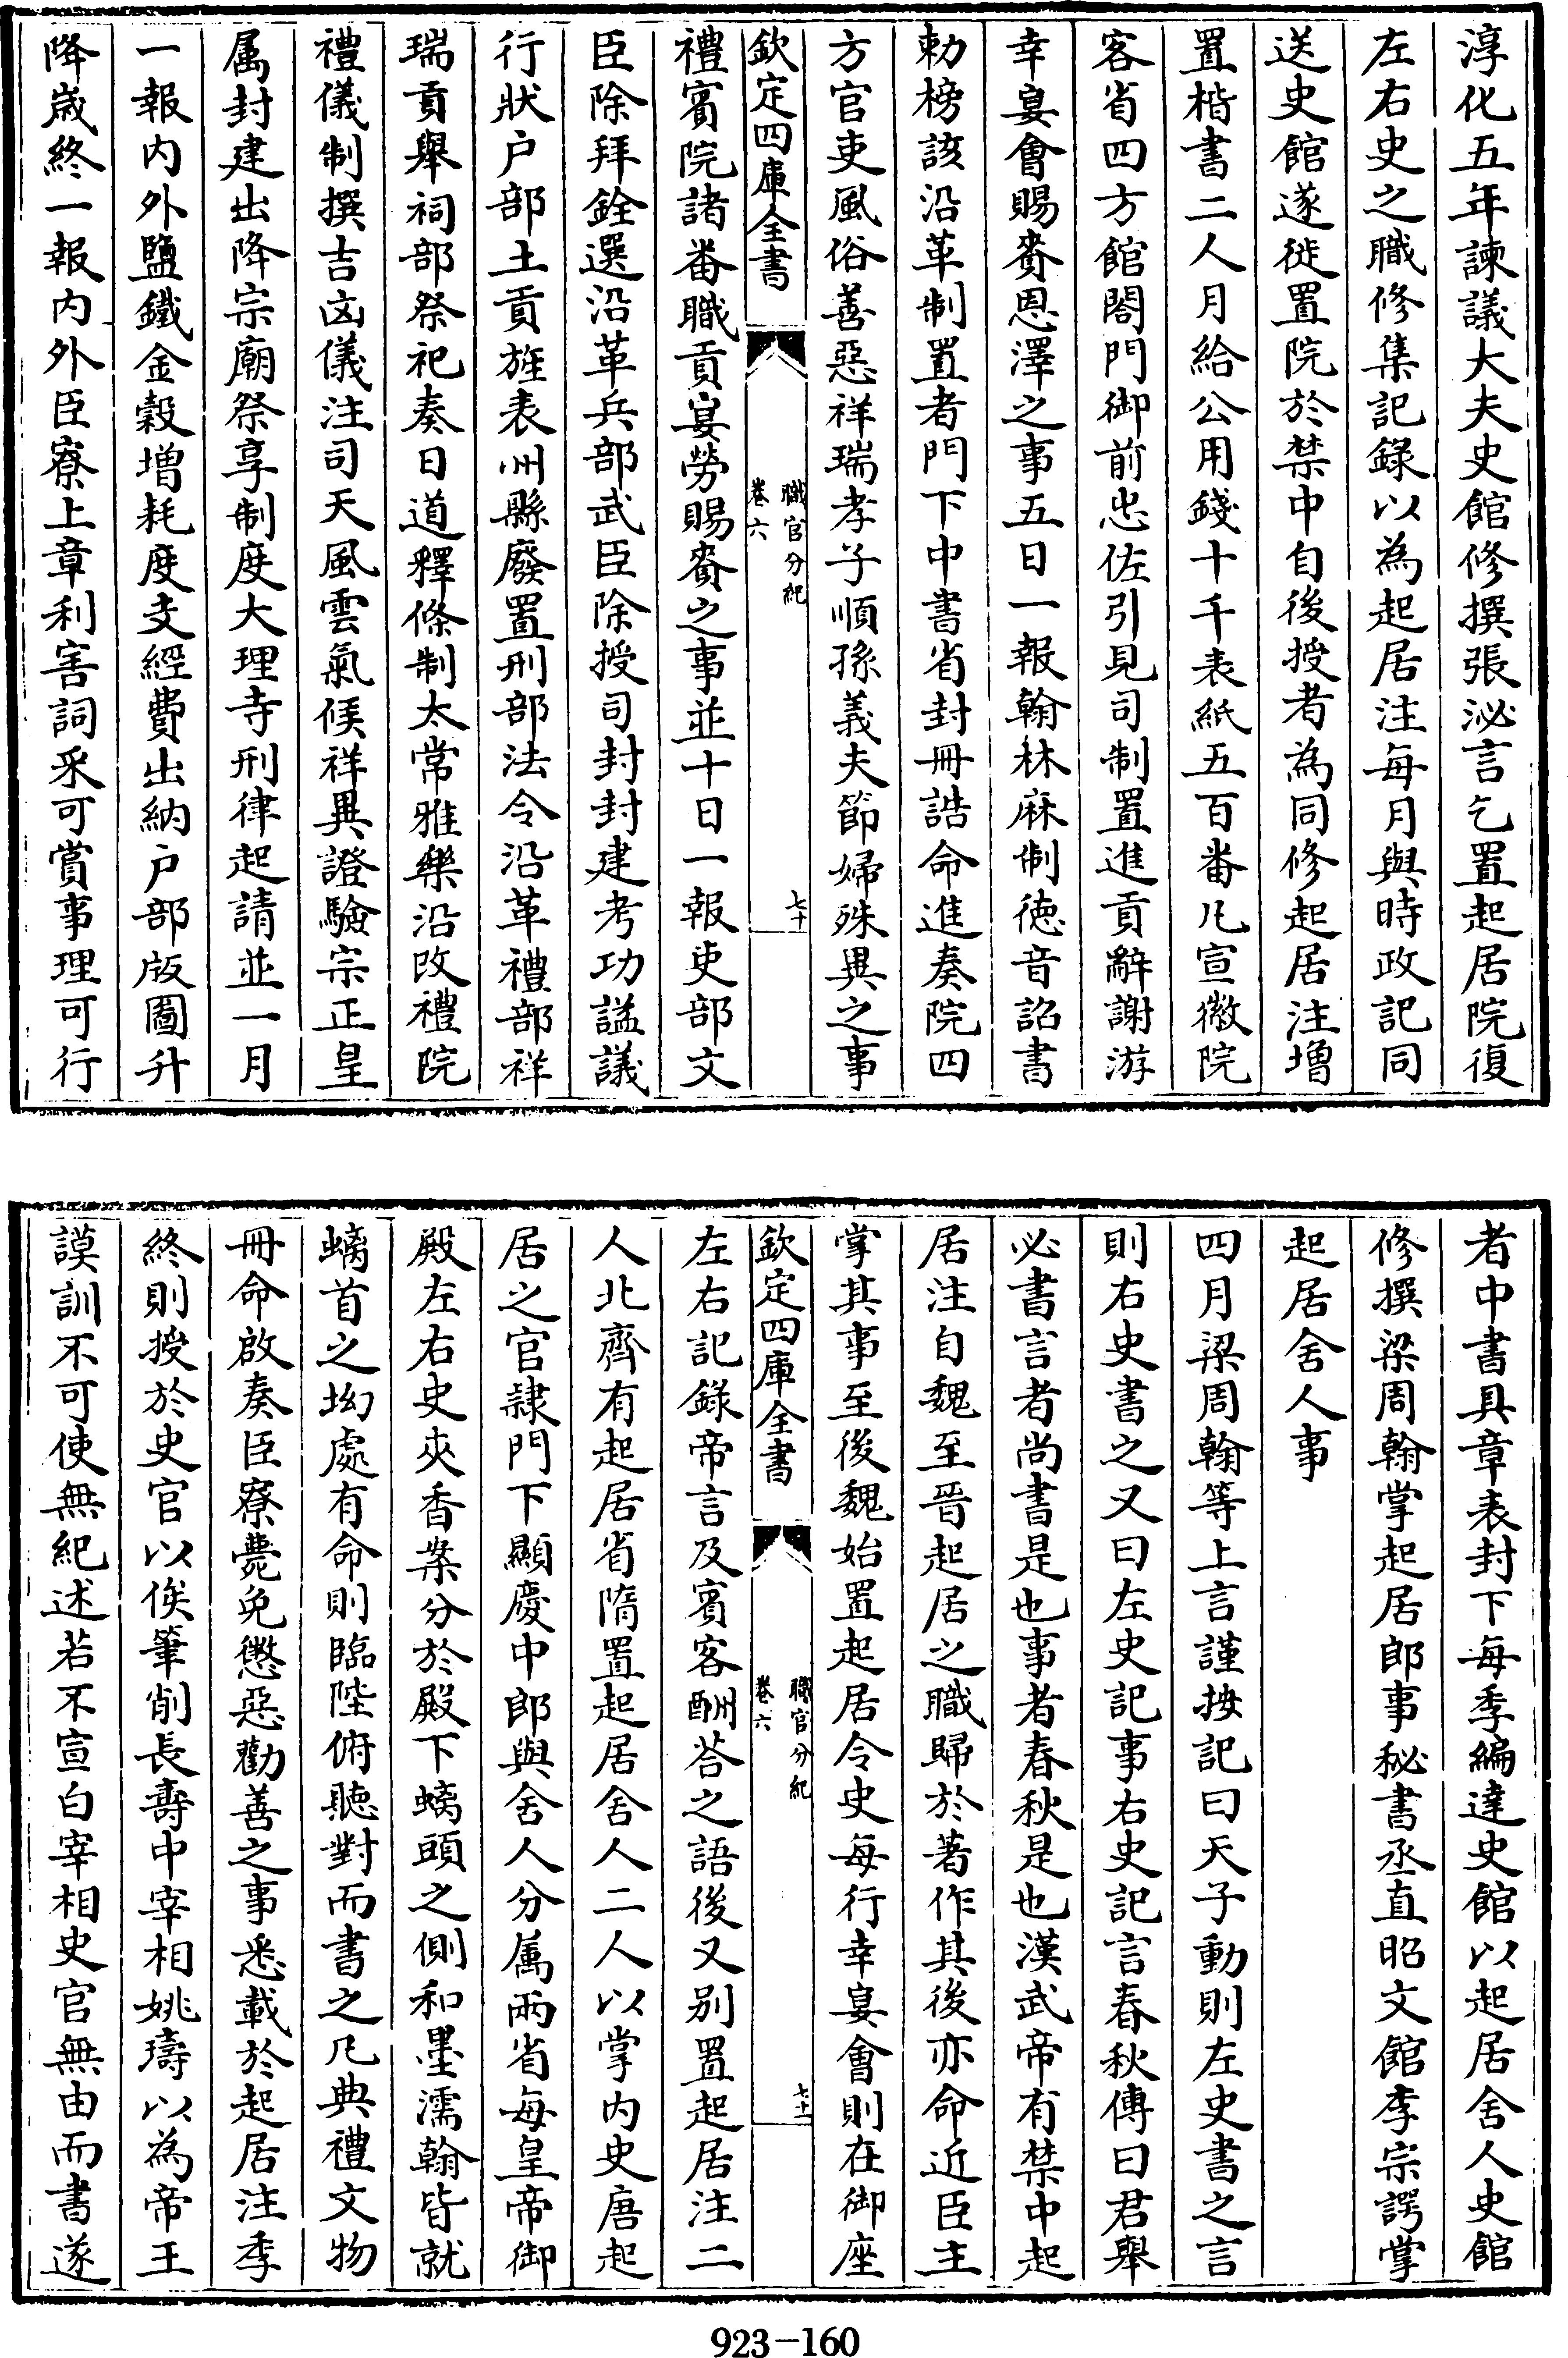 淳化五年諫議大夫史館修撰張泌言乞置起居院復
左右史之職修集記錄以為起居注每月與時政記同
送史館遂徙置院於禁中自後授者為同修起居注增
置楷書二人月給公用錢十千表紙五百番凡宣徽院
客省四方館閤門御前忠佐引見司制置進貢辭謝游
幸宴會賜賚恩澤之事五日一報翰林麻制德音詔書
勅榜該沿革制置者門下中書省封冊誥命進奏院四
方官吏風俗善惡祥瑞孝子順孫義夫節婦殊異之事
欽定四庫全書
職官分紀
卷六
七十
禮賓院諸番職貢宴勞賜賚之事並十日一報吏部文
臣除拜銓選沿革兵部武臣除授司封封建考功謚議
行狀户部土貢旌表州縣廢置刑部法令沿革禮部祥
瑞貢舉祠部祭祀奏日道釋條制太常雅樂沿改禮院
禮儀制撰吉凶儀注司天風雲氣候祥異證驗宗正皇
属封建出降宗廟祭享制度大理寺刑律起請並一月
一報内外鹽鐵金穀增耗度支經費出納户部版圖升
降歳終一報内外臣寮上章利害詞采可賞事理可行
者中書具章表封下每季編達史館以起居舍人史館
修撰梁周翰掌起居郎事秘書丞直昭文館李宗諤掌
起居舍人事
四月梁周翰等上言謹按記曰天子動則左史書之言
則右史書之又曰左史記事右史記言春秋傳曰君舉
必書言者尚書是也事者春秋是也漢武帝有禁中起
居注自魏至晉起居之職歸於著作其後亦命近臣主
掌其事至後魏始置起居令史每行幸宴會則在御座
欽定四庫全書
職官分紀
卷六
七十一
左右記錄帝言及賓客酬荅之語後又别置起居注二
人北齊有起居省隋置起居舍人二人以掌内史唐起
居之官隷門下顯慶中郎與舍人分属兩省每皇帝御
殿左右史夾香案分於殿下螭頭之側和墨濡翰皆就
螭首之坳處有命則臨陛俯聽對而書之凡典禮文物
冊命啟奏臣寮薨免懲惡勸善之事悉載於起居注季
終則授於史官以俟筆削長壽中宰相姚璹以為帝王
謨訓不可使無紀述若不宣白宰相史官無由而書遂
923-160